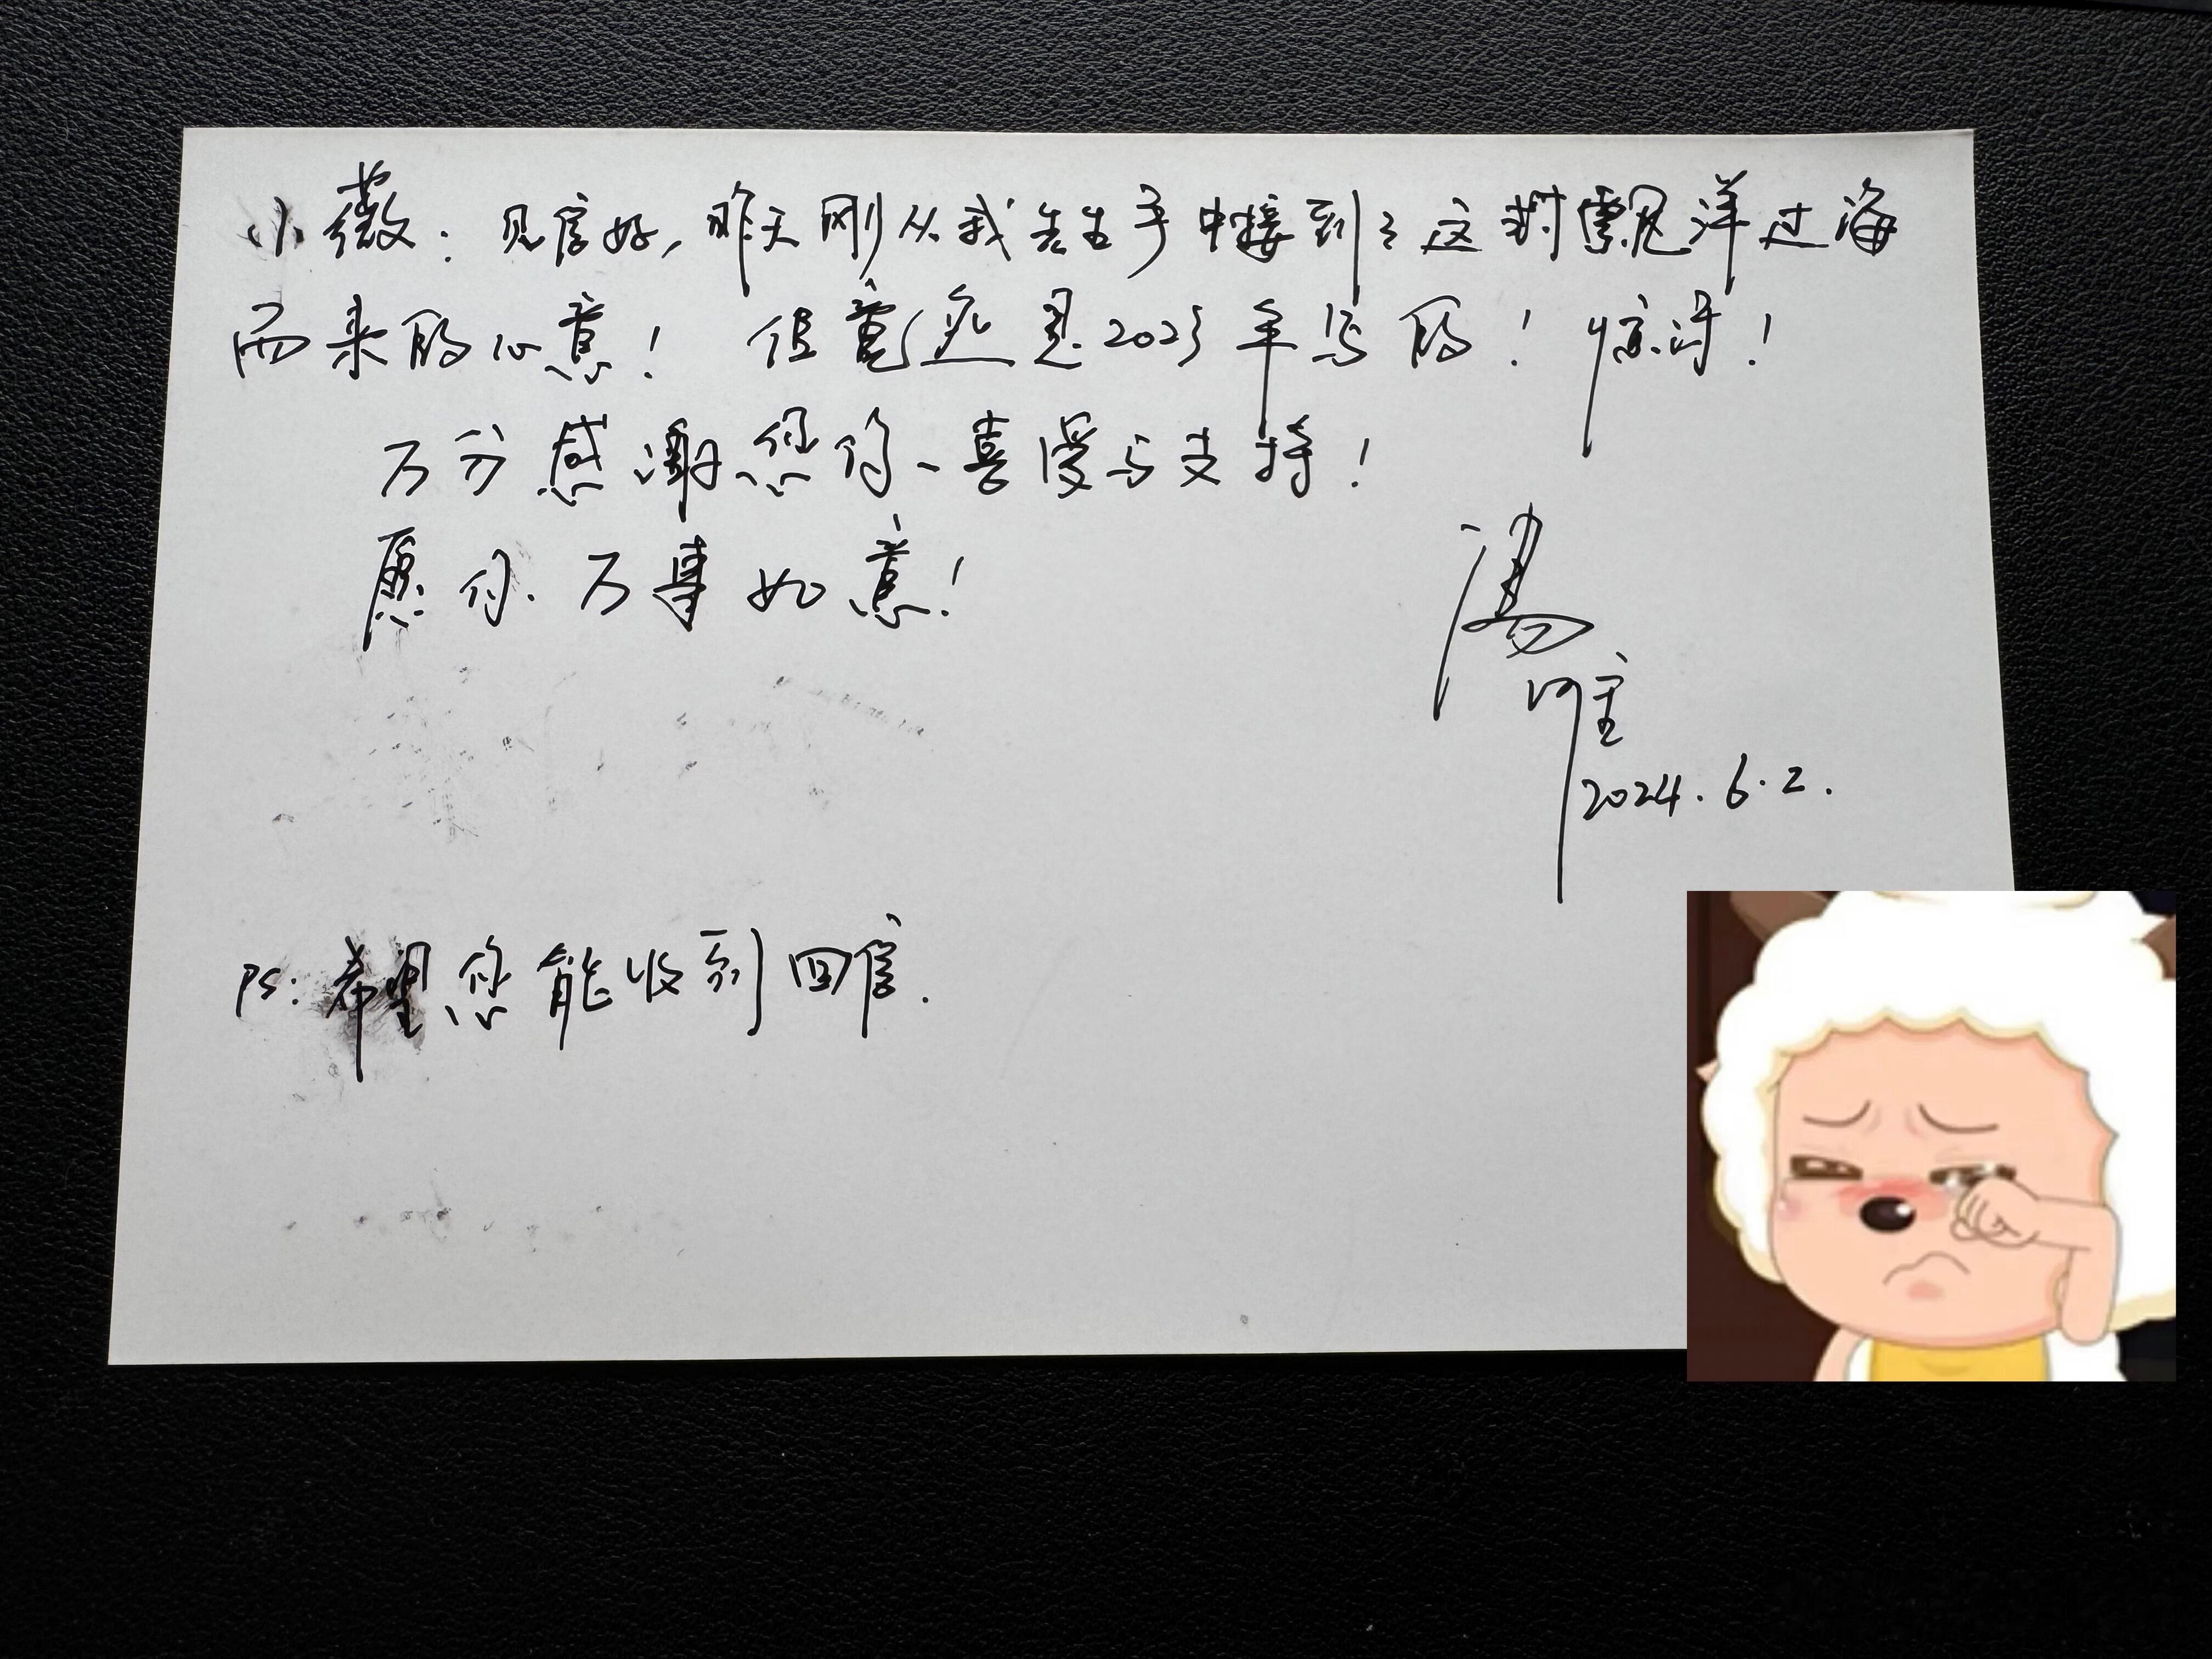 小薇：见信好，昨天刚从我先生手中接到了这封飘洋过海
而来的心意！但竟然是2023年写的！惊讶！
万分感谢您的喜爱与支持！
愿你万事如意！
湯唯
2024.6.2.
PS：希望您能收到回信.